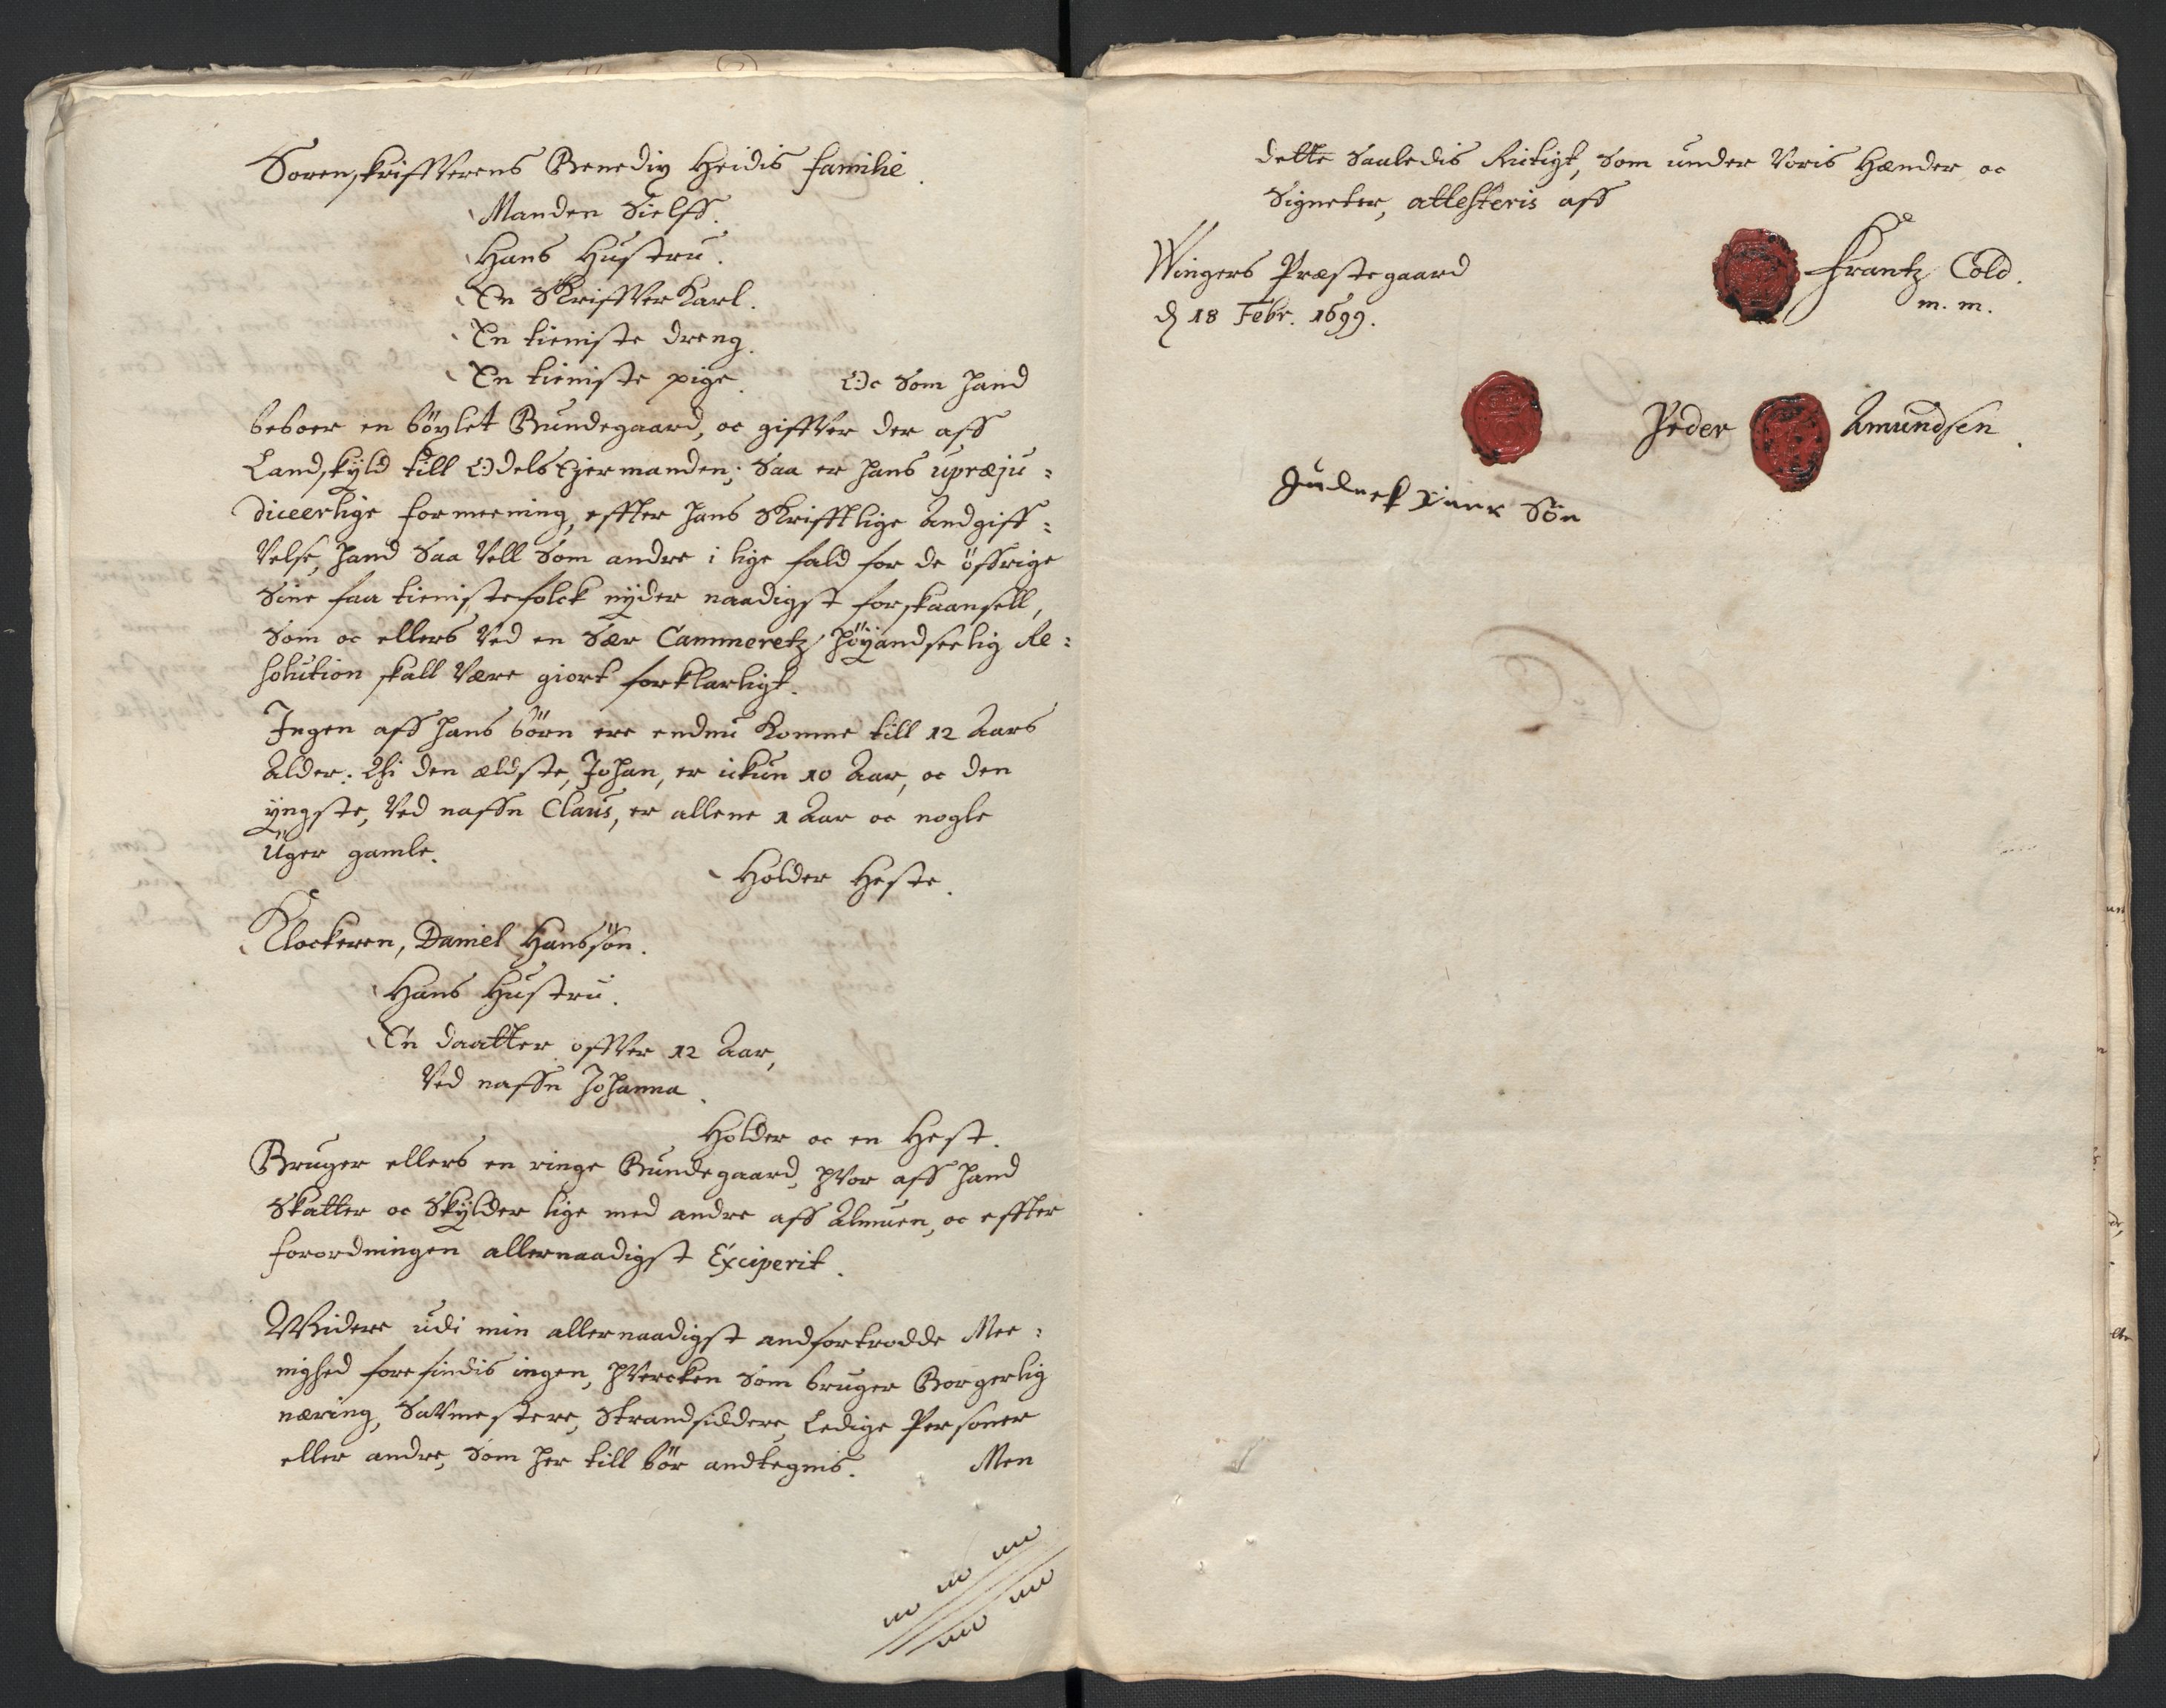 Sorenskriffverens Benedix Heidis familie.
Manden Sielff.
Hans Hustru.
En Skriffver Karl.
En tieniste dreng.
En tieniste pige. Oc Som hand
beboer en böxlet Bundegaard, oc giffver der aff
Landskyld till Odels Ejermanden; Saa er hans upræju=
diceerlige formeening, effter hans Skrifftlige Andgiff=
velse, hand Saa vell Som andre i lige fald for de öffrige
Sine faa tienistefolck nÿder naadigst forskaansell,
Som oc ellers ved en Sær Cammeretz höÿandseelig Re=
solution skall være giort forklarligt.
Ingen aff hans börn ere endnu komne till 12 Aars
Alder. Thi den ældste, Johan, er ickun 10 Aar, oc den
ÿngste, ved naffn Claus, er allene 1 Aar oc nogle
Uger gamle.
Holder Heste.
Klockeren, Daniel Hanssön.
Hans Hustru.
En daatter offver 12 Aar,
ved naffn Johanna.
Holder oc en Hest.
Bruger ellers en ringe Bundegaard, hvor aff hand
Skatter oc Skÿlder lige med andre aff Almuen, oc effter
forordningen allernaadigst Exciperit.
Widere udi min allernaadigst andfortrodde Mee=
nighed forefindis ingen, hvercken Som bruger Borgerlig
næring, Savmestere, Strandsiddere, Ledige Personer
eller andre, Som her till bör andtegnis. Men
dette Saaledis Rictigt, Som under Voris Hænder oc
Signeter, attesteris aff
Wingers Præstegaard
d 18 Febr. 1699.
Frantz Cold.
m. m.
Peder Amundsen.
Sön